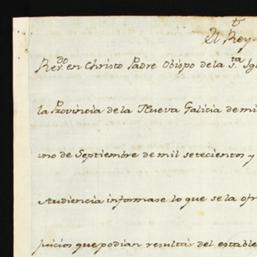 t
El Rey
Rev.do en Christo Padre Obispo de la S.ta Igl
la Provincia de la Nueva Galicia de mi
uno de Septiembre de mil setecientos y
Audiencia informase lo que se la ofr
juicios que podian resultar del estable